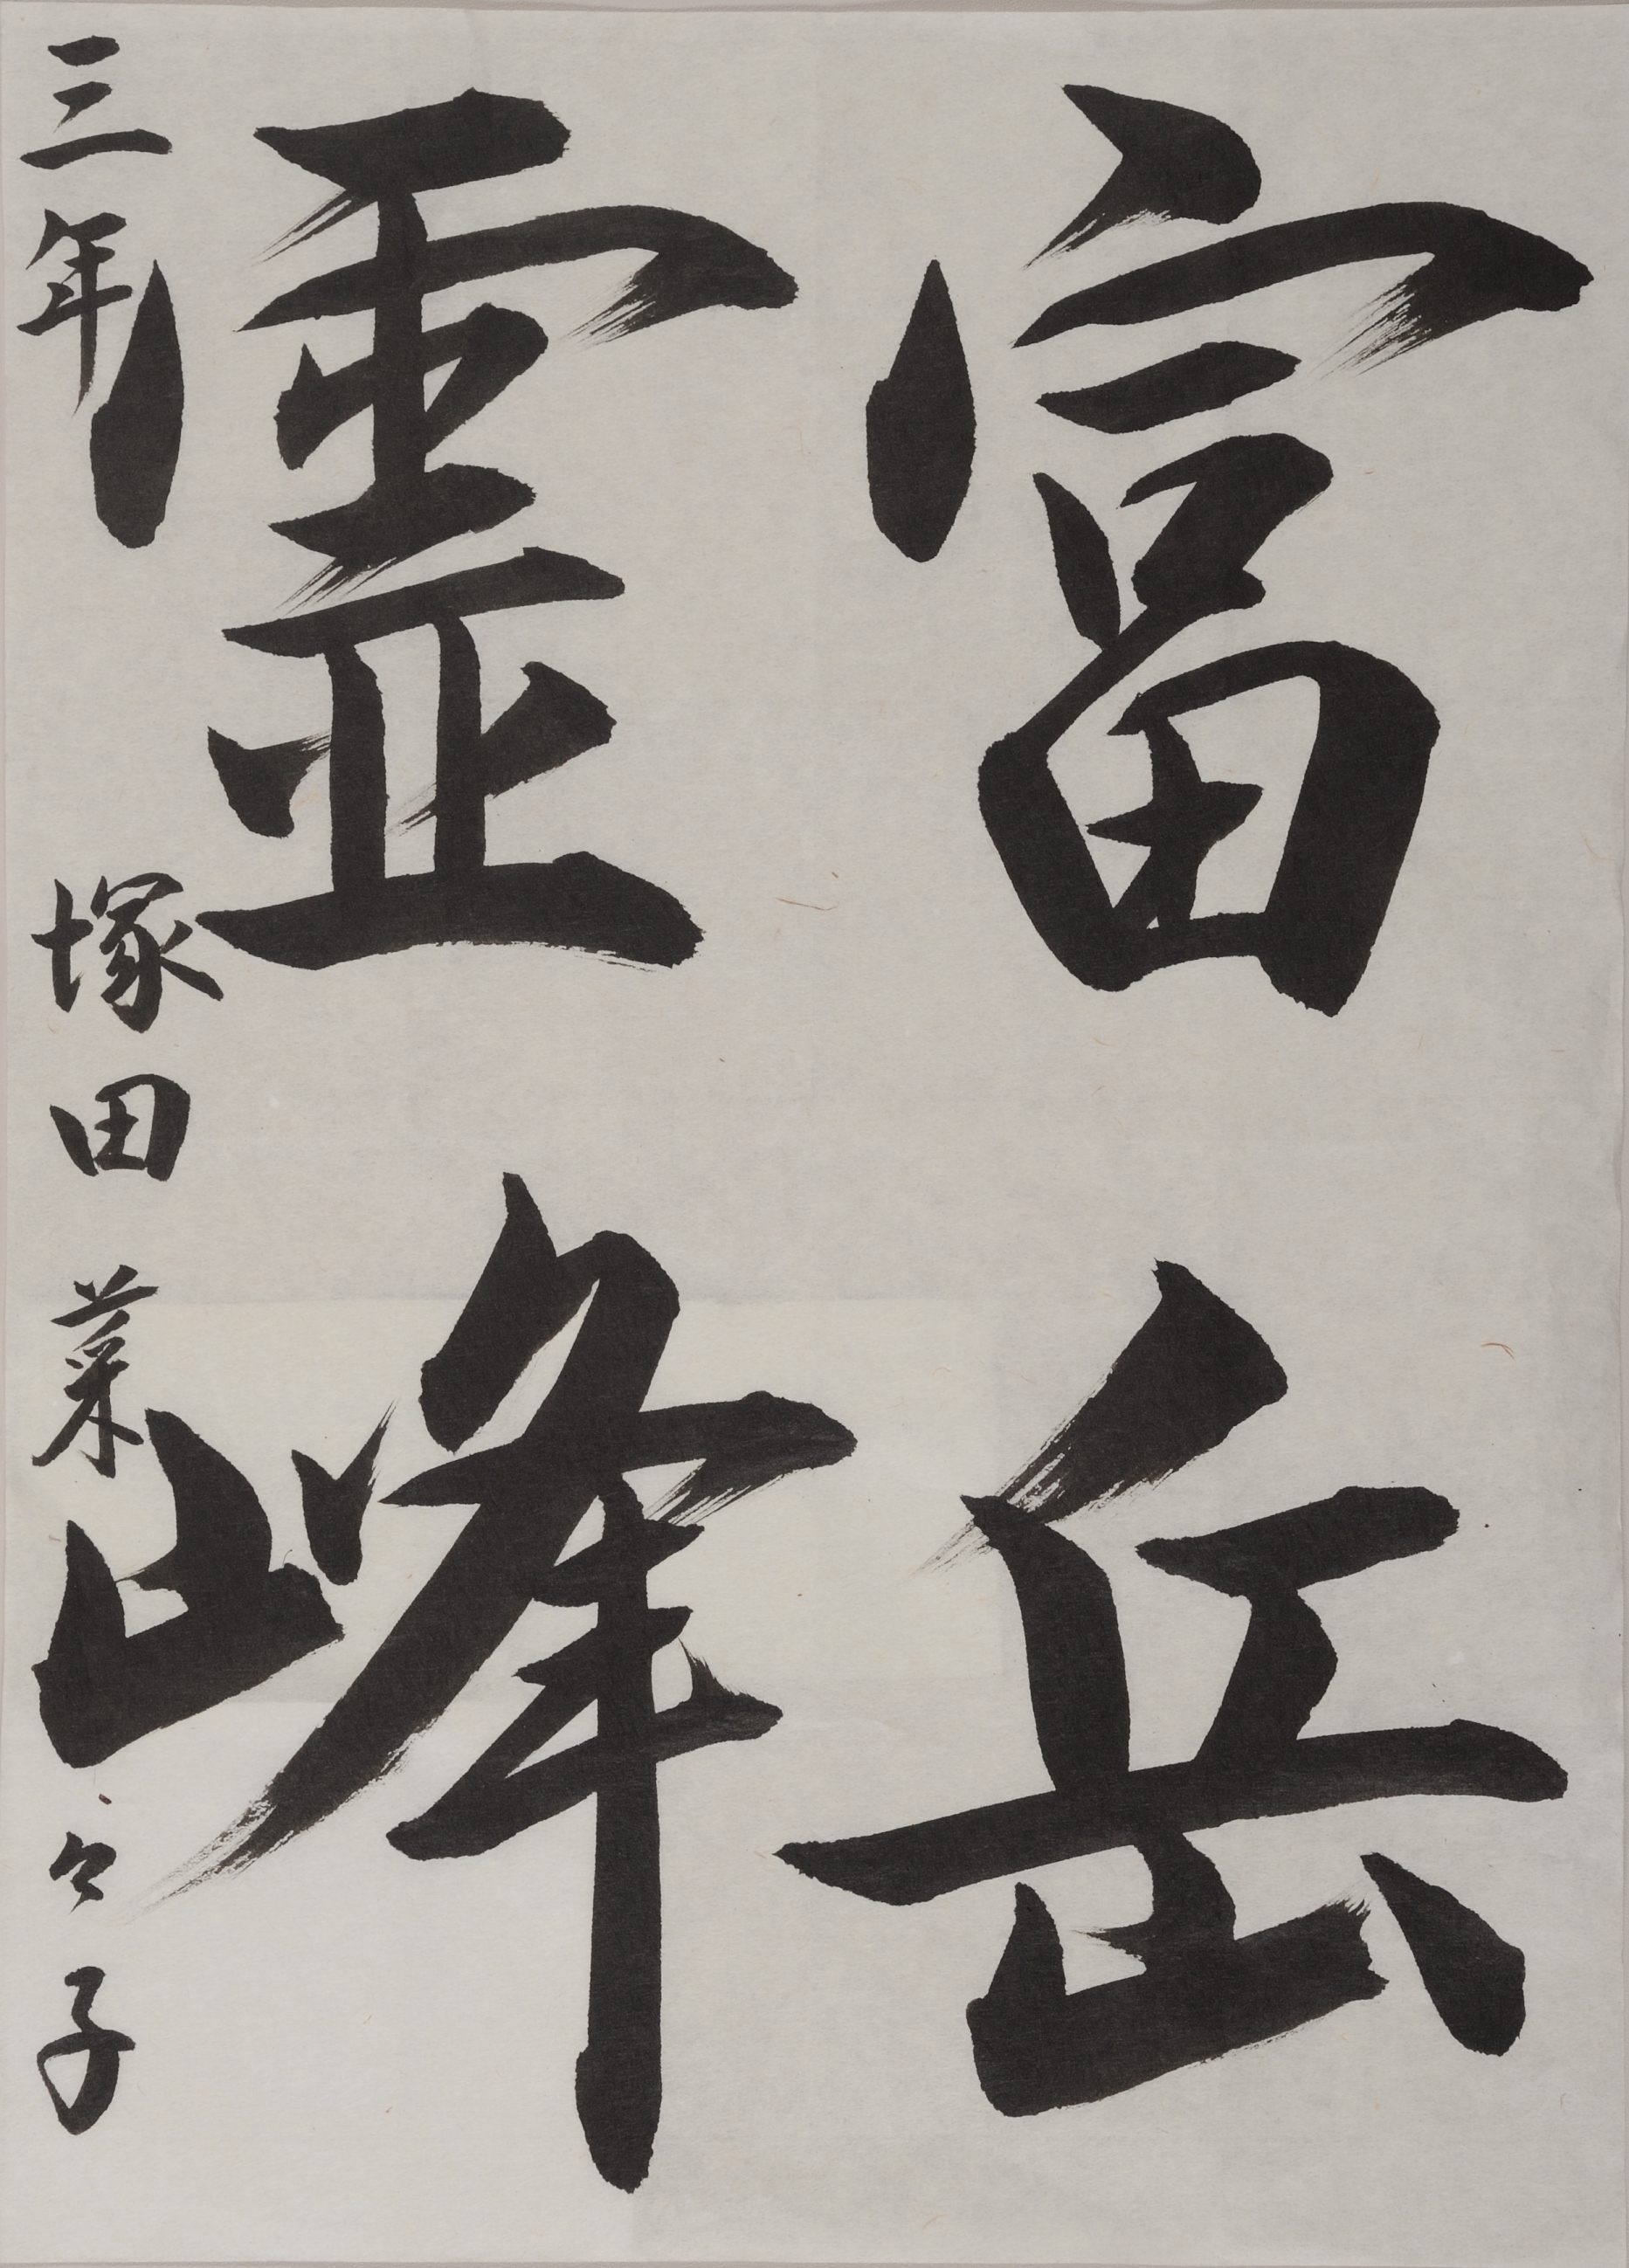 富岳
霊峰
三年 塚田菜々子